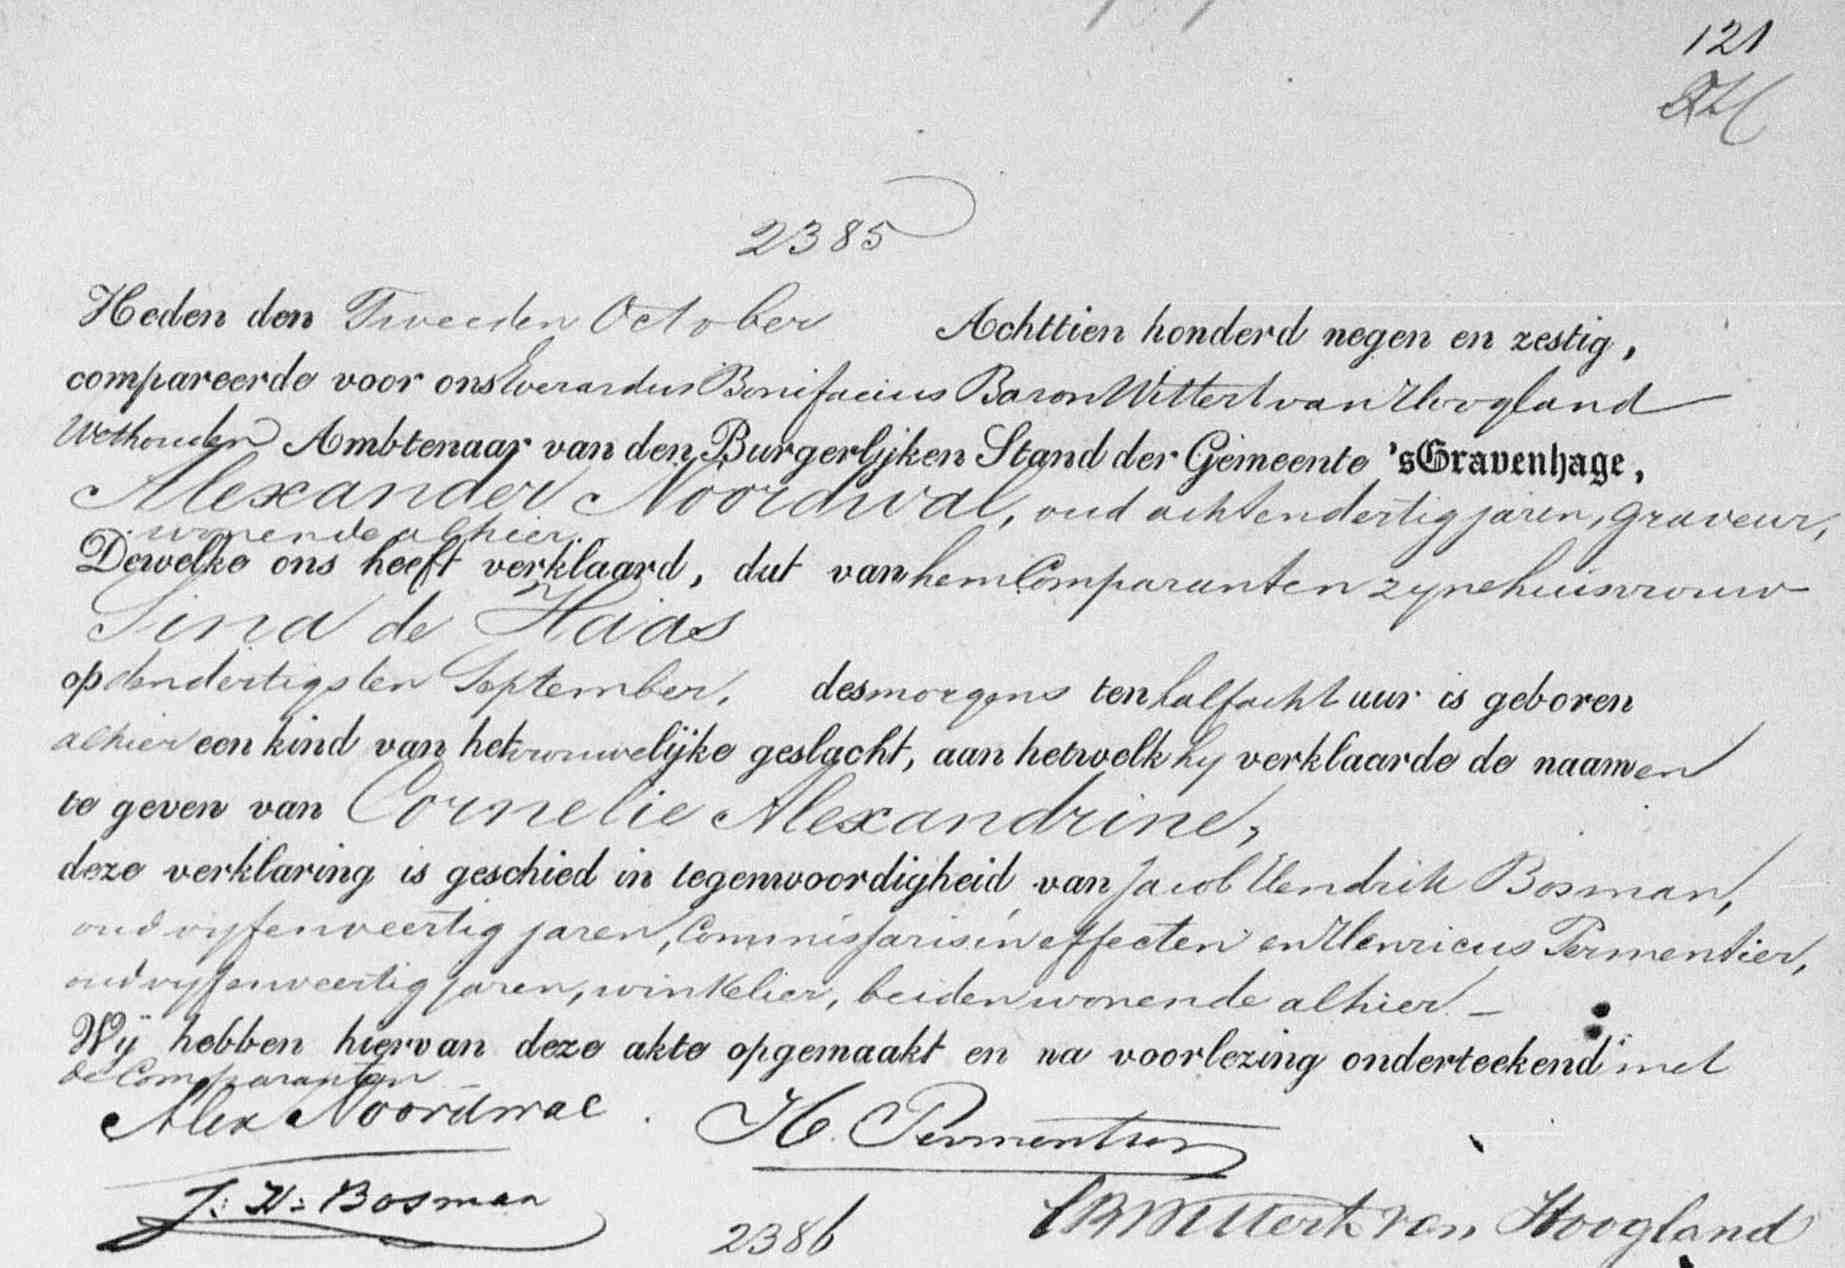 121
2385
Heden den Tweeden October Achttien honderd negen en zestig,
compareerde voor ons Everardus Bonifacius Baron Wittert van Hoogland
Wethouder Ambtenaar van den Burgerlijken Stand der Gemeente 'sGravenhage,
Alexander Noordwal, oud achtendertig jaren, graveur,
wonende alhier.
Dewelke ons heeft verklaard, dat van hem Comparant en zyne huisvrouw
Sina de Haas
op den dertigsten September, des morgens ten half acht uur is geboren
alhier een kind van het vrouwelijke geslacht, aan hetwelk hy verklaarde de naamen
te geven van Cornelie Alexandrine,
deze verklaring is geschied in tegenwoordigheid van Jacob Hendrik Bosman,
oud vyfenveertig jaren, Commissaris in effecten en Henricus Permentier,
oud vyfenveertig jaren, winkelier, beiden wonende alhier. –
Wij hebben hiervan deze akte opgemaakt en na voorlezing onderteekend met
de Comparanten
Alex Noordwal. H. Permentier
J: H: Bosman
2386 EB Wittert van Hoogland